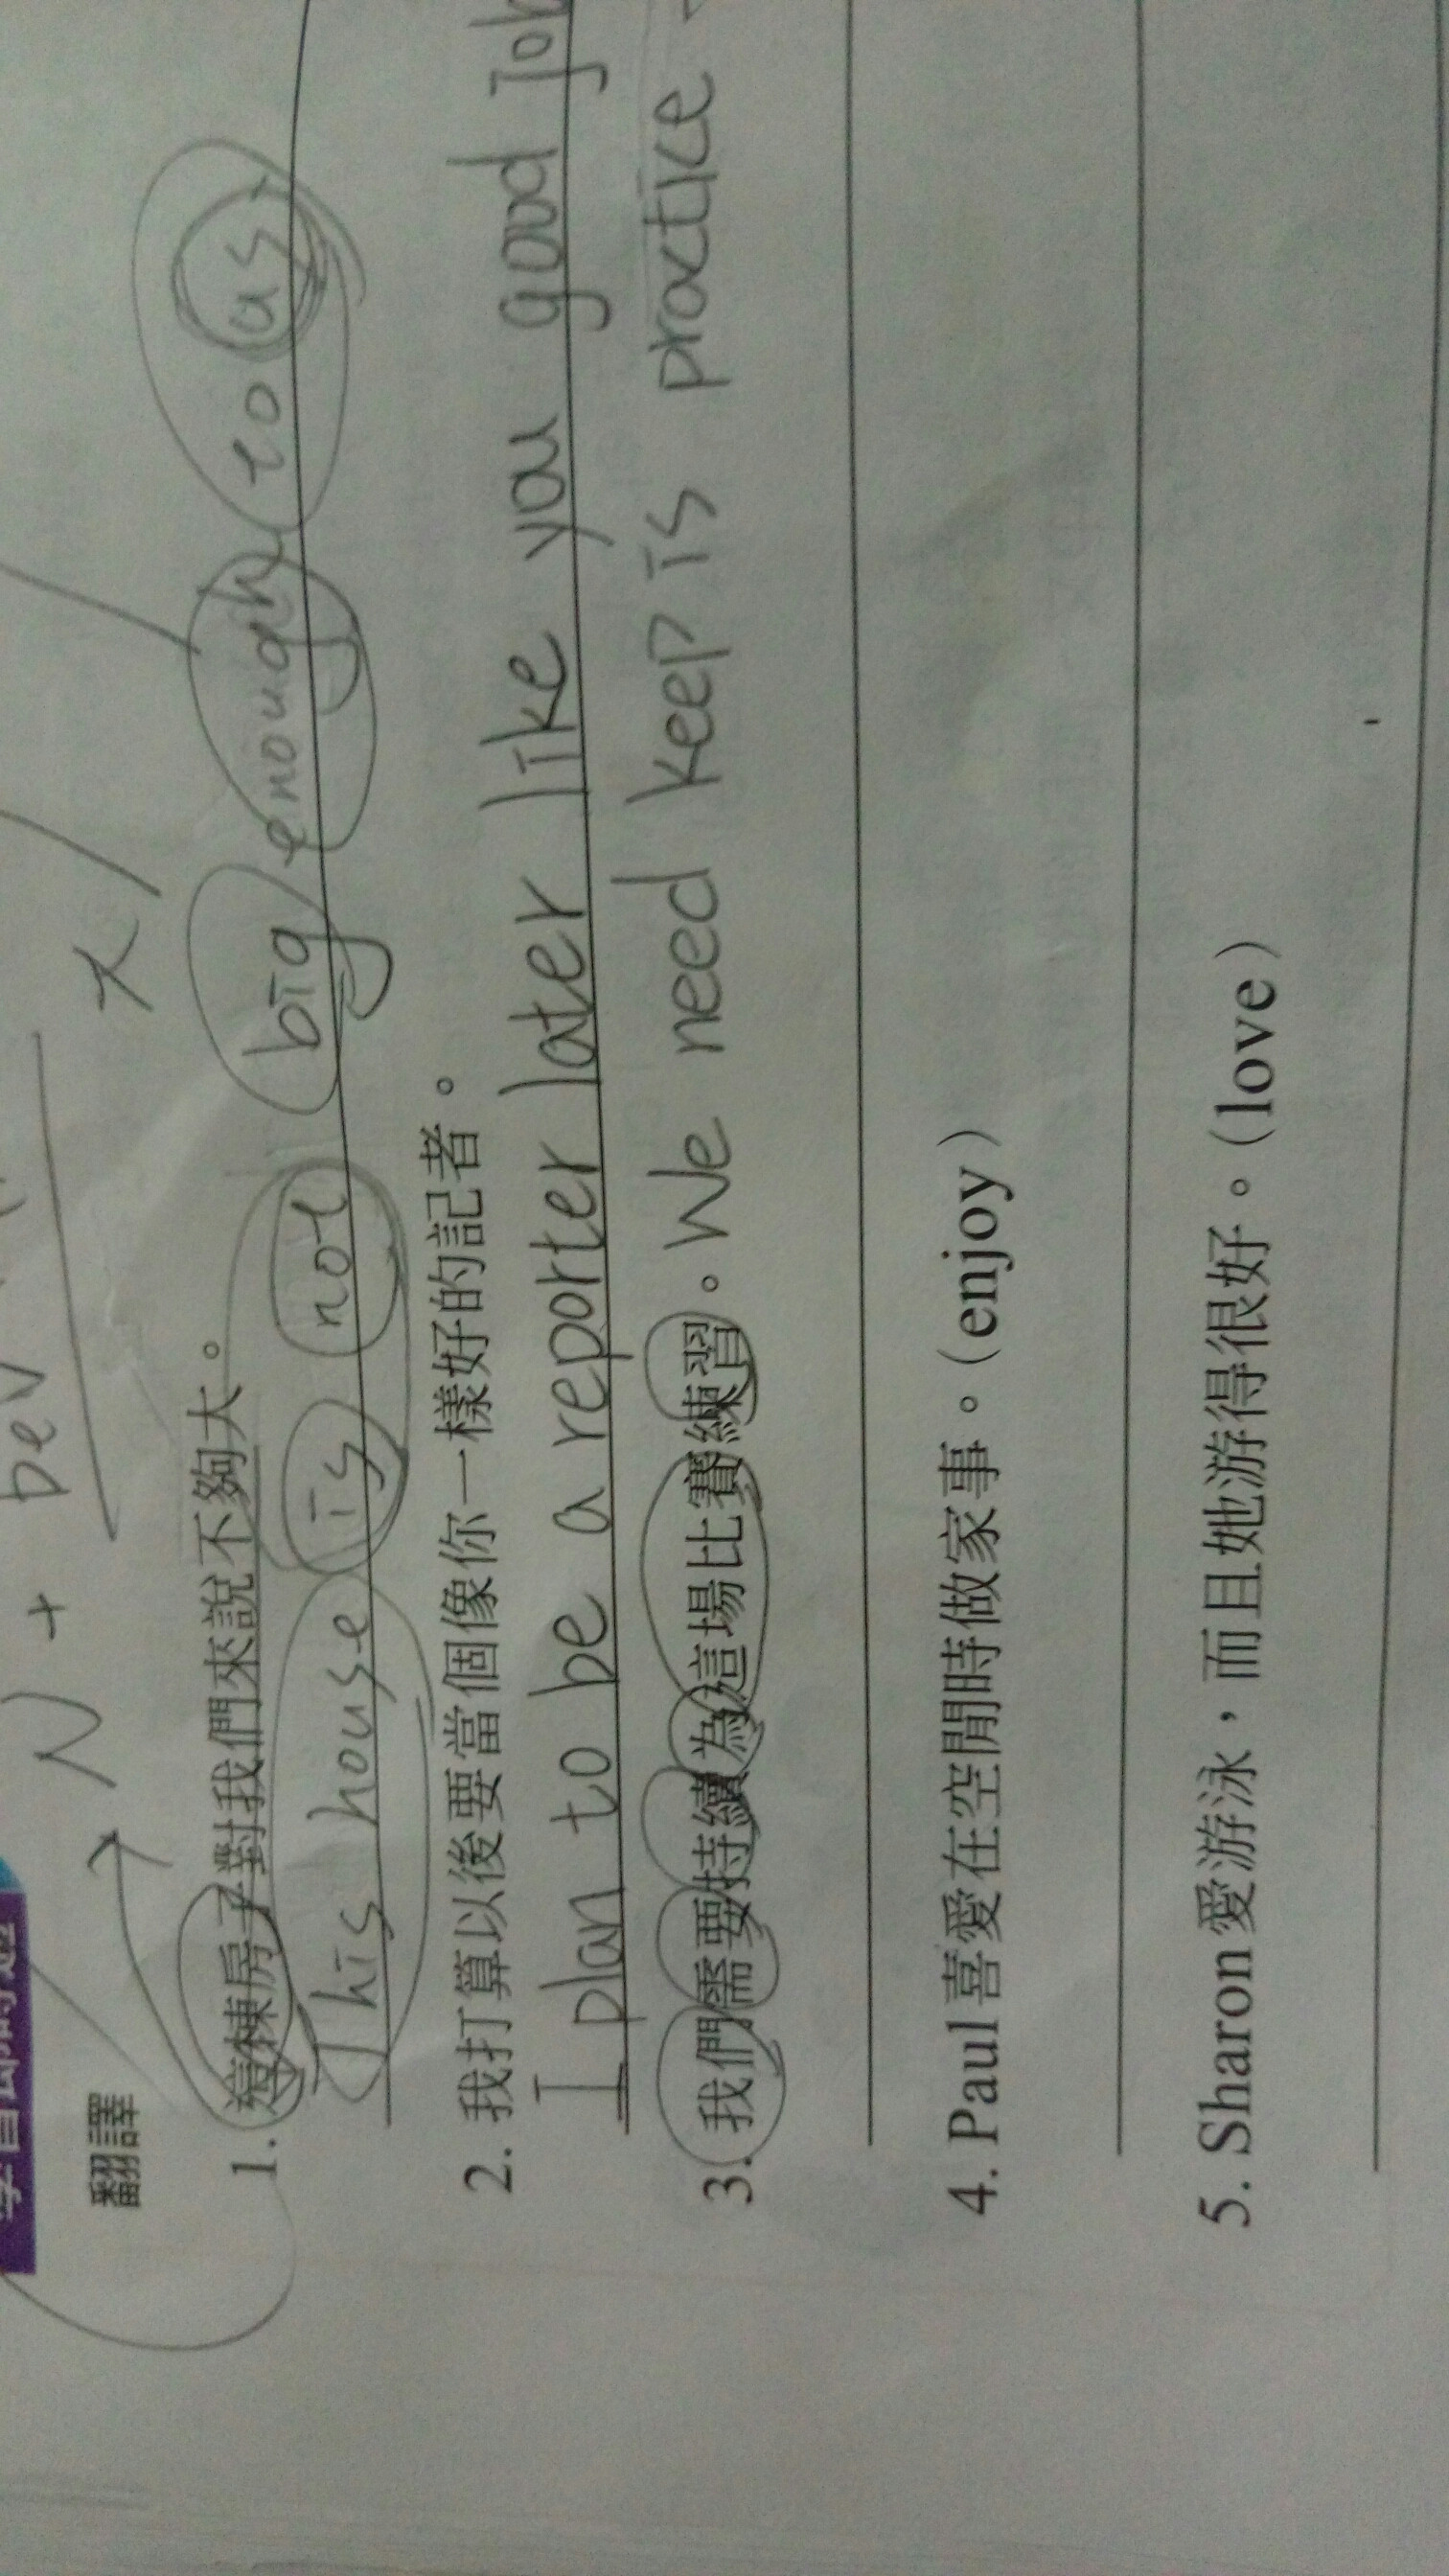 N + beV
翻譯
1. 這棟房子對我們來說不夠大。
This house is not big enough to us.
2. 我打算以後要當個像你一樣好的記者。
I plan to be a reporter later like you good Job
3. 我們需要持續為這場比賽練習。We need keep is practice
4. Paul 喜愛在空閒時做家事。(enjoy)
5. Sharon 愛游泳，而且她游得很好。(love)